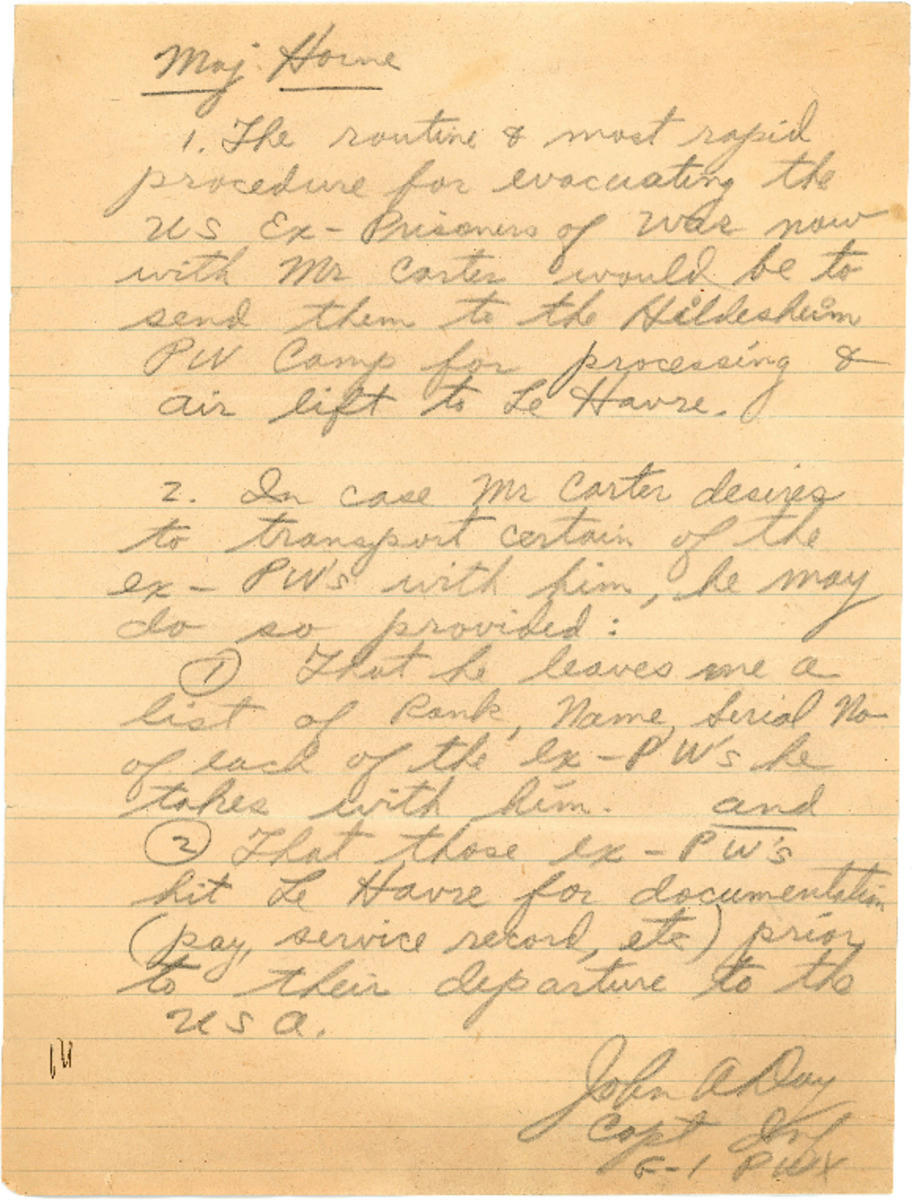 Maj. Horne
1. The routine & most rapid
procedure for evacuating the
US Ex-Prisoners of War now
with Mr Carter would be to
send them to the Hildesheim
PW Camp for processing &
air lift to Le Havre.
2. In case Mr Carter desires
to transport certain of the
ex-PW's with him, he may
do so provided:
① That he leaves me a
list of Rank, Name, Serial No
of each of the ex-PW's he
takes with him. and
② That those ex-PW's
hit Le Havre for documentation
(pay, service record, etc) prior
to their departure to the
USA.
John A Day
Capt Inf
G-1 PWX